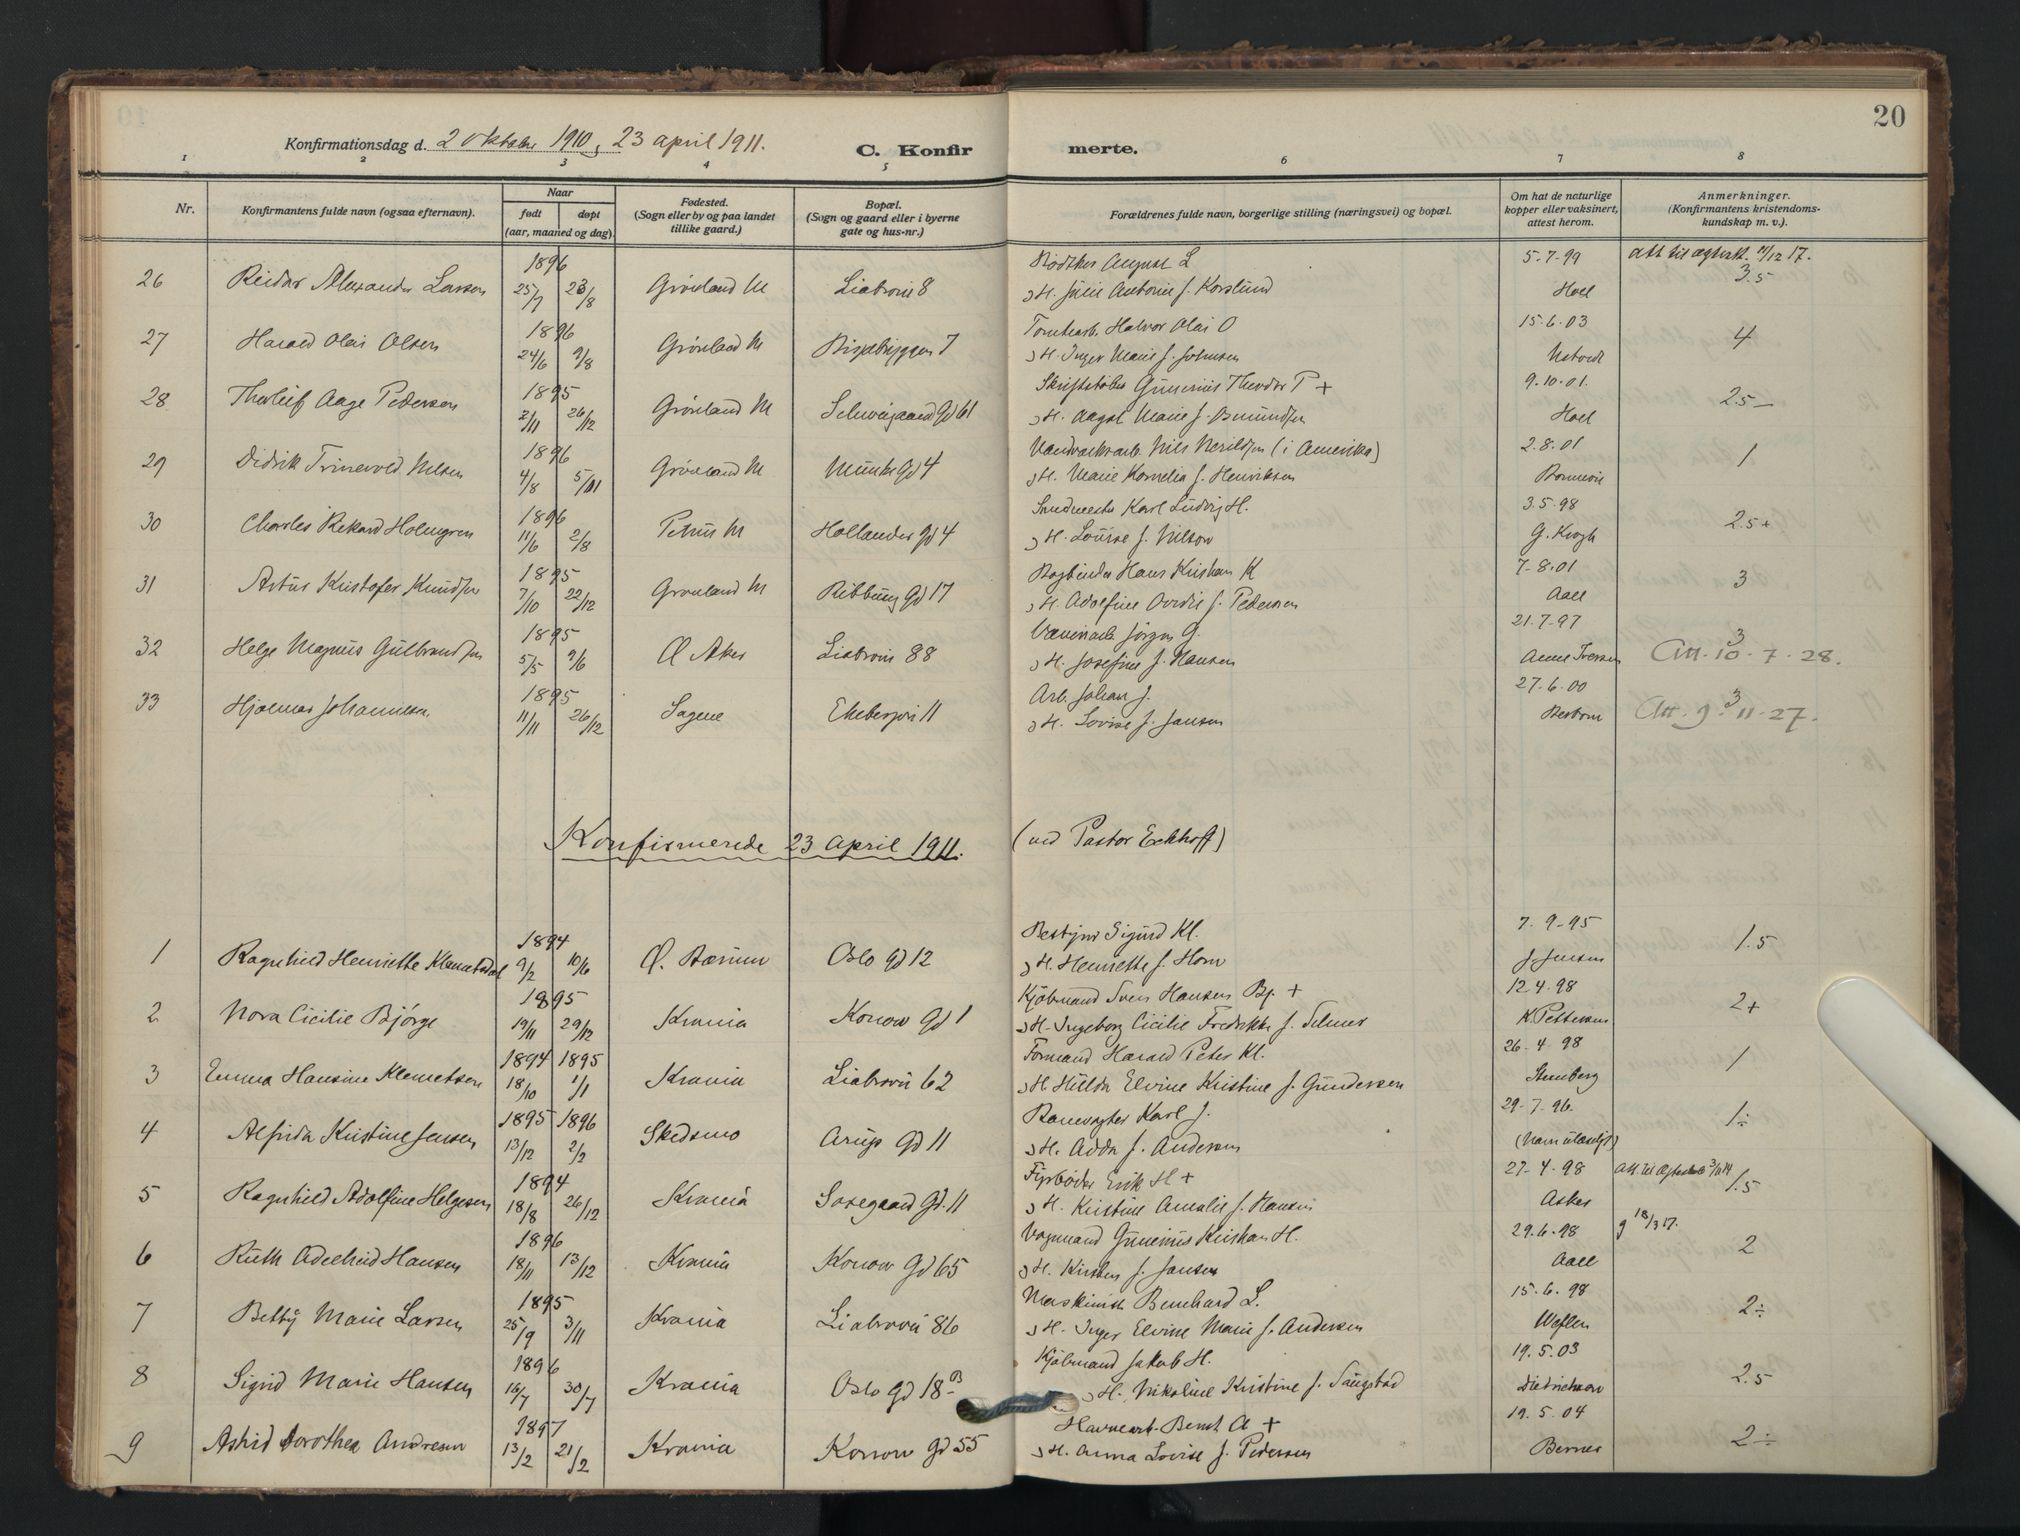 20
Konfirmationsdag d. 2 oktober 1910, 23 april 1911.
C. Konfirmerte.
1 2 3 4 5 6 7 8
Nr.
Konfirmantens fulde navn (ogsaa efternavn).
Naar
født
døpt
(aar, maaned og dag).
Fødested.
(Sogn eller by og paa landet
tillike gaard.)
Bopæl.
(Sogn og gaard eller i byerne
gate og hus-nr.)
Forældrenes fulde navn, borgerlige stilling (næringsvei) og bopæl.
Om hat de naturlige
kopper eller vaksinert,
attest herom.
Anmerkninger.
(Konfirmantens kristendoms-
kundskap m. v.).
26 Reidar Alexander Larsen 1896 25/7 23/8 Grønland M Liabrovei 8 Bødtker August L 5-7-99
H. Julie Antonie f. Korslund Hoel 3.5
27 Harald Olai Olsen 1896 24/6 9/8 Grønland M Bispebryggen 7 Tomtearb. Halvor Olai O 15.6.03 4
H. Inger Marie f. Johnsen
28 Thorleif Aage Pedersen 1895 2/11 26/12 Grønland M Schweigaard Gd 61 Skriftstøber Gunerius Theodor P + 9.10.01. 2.5 –
H. Aagot Marie f. Asmundsen Hoel
29 Didrik Trinervold Nilsen 1896 4/8 5/101 Grønland M Munke Gd 4 Nils (i Amerika) 2.8.01 1
H. Marie Kornelia f. Henriksen
30 Charles Rikard Holmgren 1896 11/6 2/8 Petrus M Hollender Gd 4 Karl Ludvig H. 3.5.98 2.5 +
H. Louise f. Nilson G. Krogh
31 Artur Kristofer Knudsen 1895 7/10 22/12 Grønland M Ribbung Gd 17 Bogbinder Hans Kristian K 7-8.01 3
H. Adolfine f. Pedersen Aall
32 Helge Magnus Gulbrandsen 1895 5/5 9/6 Ø Aker Liabrovei 88 Jørgen G. 21.7-97 3
H. Josefine f. Hansen Anne Iversen Att. 10-7-28.
33 Hjalmar Johannesen. 1895 11/11 26/12 Sagene Ekebergvei 11 Arb. Johan J. 27.6.00 3
H. Lovise f. Jansen Att. 9-11-27.
Konfirmerede 23 april 1911. (ved Pastor Eckhoff)
1 Ragnhild Henriette Klemetsdal 1894 9/2 10/6 Ø. Bærum Oslo Gd 12 Bestyrer Sigurd Kl. 7.9-95 1.5
H. Henriette f. Horn J. Jensen
2 Nora Cicilie Bjørge 1895 19/11 29/12 Krania Konow Gd 1 Kjøbmand Sven Hansen Bj. + 12.4.98 2+
H. Ingeborg Cicilie Fredrikke f. Selmer K. Pettersen
3 Emma Hansine Klemetsen 1894 18/10 1895 1/1 Krania Liabrovei 62 Formand Harald Peter Kl. 26-4-98 1
H. Hulda Elvine Kristine f. Gundersen Stenberg
4 Alfrida Kristine Jensen 1895 13/12 1896 2/2 Skedsmo Arup Gd 11 Banevogter Karl J. 29-7-96. 1÷
H. Adda f. Andersen (Navn ulæseligt)
5 Ragnhild Adolfine Helgesen 1894 18/8 26/12 Krania Gd. 11 Fyrbøder Erik H + 27-4-98 1.5
H. Kristine Amalie f. Hansen Asker
6 Ruth Adelheid Hansen 1896 18/11 13/12 Krania Konow Gd 65 Vognmand Gunerius Kristian H. 29.6-98 g 18/3 17. 2
H. Kirsten f. Jansen Aall
7 Betty Marie Larsen 1895 25/9 3/11 Krania Liabrovei 86 Maskinist Bernhard L. 15.6.98 2÷
H. Inger Elvine Marie f. Andersen
8 Sigrid Marie Hansen 1896 16/7 30/7 Krania Oslo Gd 18 B Kjøbmand Jakob H. 19.5.03 2.5
H. Nikoline Kristine f. Saugstad Dietrichson
9 Astrid Dorothea Andresen 1897 13/2 21/2 Krania Konow Gd 55 Havnearb. Bernt A + 19.5.04 2÷
H. Anna Lovise f. Pedersen Berner